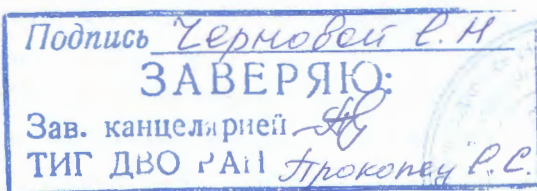 Подпись Черновой Е.Н
ЗАВЕРЯЮ:
Зав. канцелярией
ТИГ ДВО РАН Прокопец Е.С.